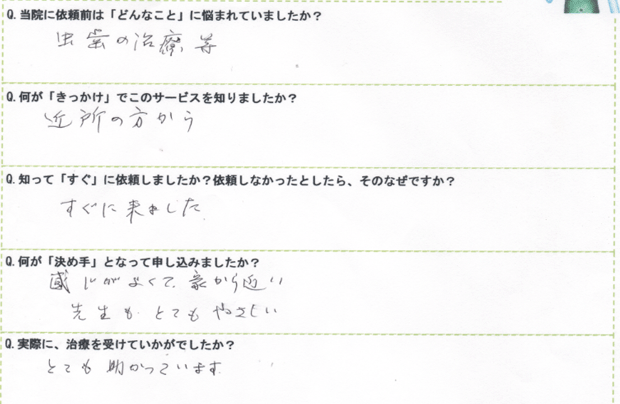 Q.当院に依頼前は「どんなこと」に悩まれていましたか？
虫歯の治療等
Q.何が「きっかけ」でこのサービスを知りましたか？
近所の方から
Q.知って「すぐ」に依頼しましたか？依頼しなかったとしたら、そのなぜですか？
すぐに来ました。
Q.何が「決め手」となって申し込みましたか？
感じがよくて、家から近い
先生も とても やさしい
Q.実際に、治療を受けていかがでしたか？
とても 助かっています